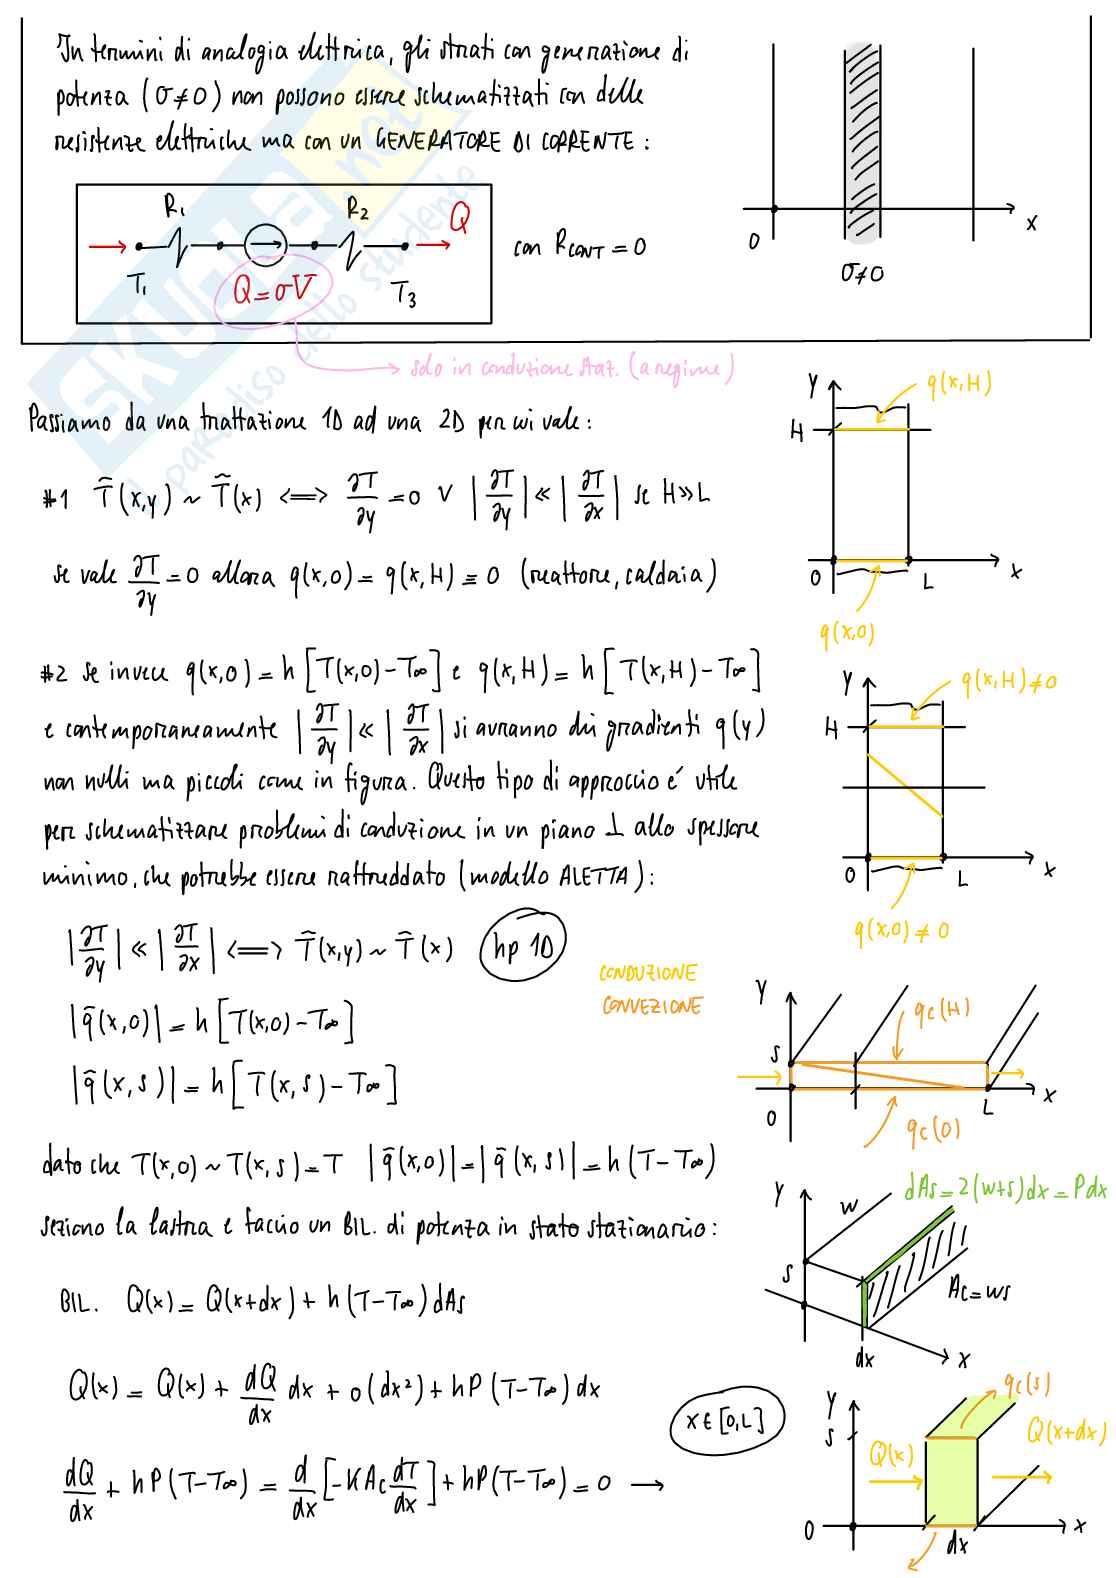 In termini di analogia elettrica, gli strati con generazione di
potenza (σ≠0) non possono essere schematizzati con delle
resistenze elettriche ma con un GENERATORE DI CORRENTE:
R₁
R₂
Q
T₁
Q=σV
T₃
con R_CONT = 0
0
x
σ≠0
solo in conduzione staz. (a regime)
Passiamo da una trattazione 1D ad una 2D per cui vale:
#1 T̂(x,y) ~ T̂(x) <=> ∂T/∂y = 0 ∨ |∂T/∂y| << |∂T/∂x| se H>>L
se vale ∂T/∂y = 0 allora q(x,0) = q(x,H) = 0 (reattore, caldaia)
y
q(x,H)
H
0
L
x
q(x,0)
#2 se invece q(x,0) = h[T(x,0)-T∞] e q(x,H) = h[T(x,H)-T∞]
e contemporaneamente |∂T/∂y| << |∂T/∂x| si avranno dei gradienti q(y)
non nulli ma piccoli come in figura. Questo tipo di approccio é utile
per schematizzare problemi di conduzione in un piano ⊥ allo spessore
minimo, che potrebbe essere raffreddato (modello ALETTA):
y
q(x,H)≠0
H
0
L
x
q(x,0) ≠ 0
|∂T/∂y| << |∂T/∂x| <=> T̂(x,y) ~ T̂(x)
hp 1D
|q̄(x,0)| = h[T(x,0)-T∞]
|q̄(x,s)| = h[T(x,s)-T∞]
CONDUZIONE
CONVEZIONE
y
qc(H)
s
0
L
x
qc(0)
dato che T(x,0) ~ T(x,s) = T |q̄(x,0)| = |q̄(x,s)| = h(T-T∞)
seziono la lastra e faccio un BIL. di potenza in stato stazionario:
y
w
dAs = 2(w+s)dx = Pdx
s
Ac = ws
dx
x
BIL. Q(x) = Q(x+dx) + h(T-T∞)dAs
Q(x) = Q(x) + dQ/dx dx + o(dx²) + hP(T-T∞)dx
x∈[0,L]
dQ/dx + hP(T-T∞) = d/dx[-KAc dT/dx] + hP(T-T∞) = 0 →
y
qc(s)
s
Q(x)
Q(x+dx)
0
dx
x
SKUOLA.net
il paradiso dello studente